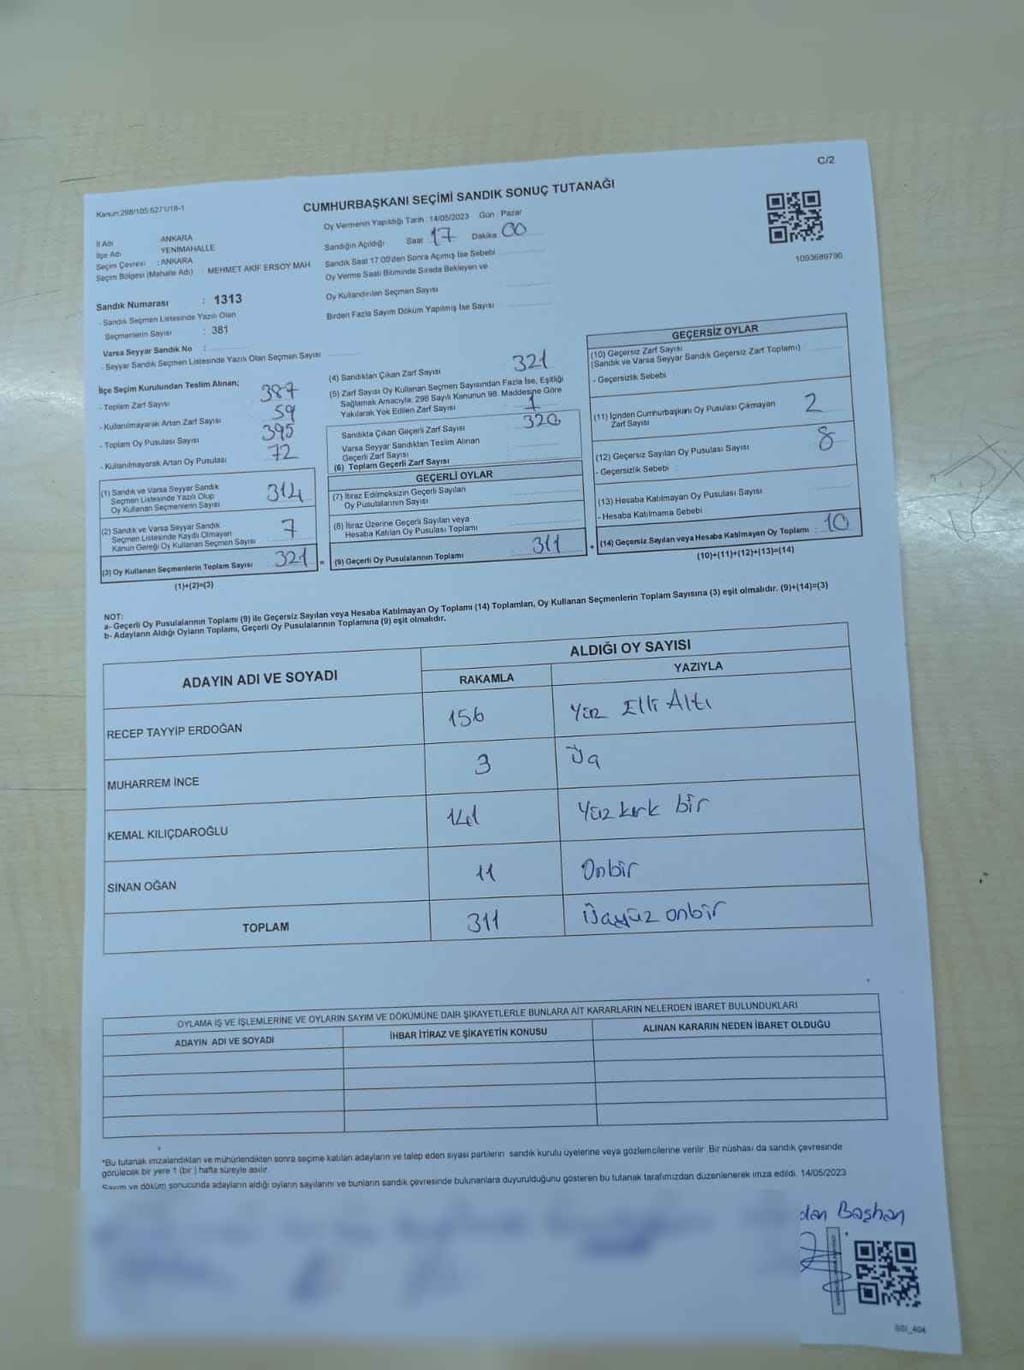 C/2
Kanun:298/105;6271/18-1
CUMHURBAŞKANI SEÇİMİ SANDIK SONUÇ TUTANAĞI
İl Adı : ANKARA
İlçe Adı : YENİMAHALLE
Seçim Çevresi : ANKARA
Seçim Bölgesi (Mahalle Adı) : MEHMET AKİF ERSOY MAH
Oy Vermenin Yapıldığı Tarih : 14/05/2023 Gün : Pazar
Sandığın Açıldığı Saat : 17 Dakika : 00
Sandık Saat 17:00'den Sonra Açılmış İse Sebebi
Oy Verme Saati Bitiminde Sırada Bekleyen ve
Oy Kullandırılan Seçmen Sayısı
Birden Fazla Sayım Döküm Yapılmış İse Sayısı
1093689790
Sandık Numarası : 1313
- Sandık Seçmen Listesinde Yazılı Olan
Seçmenlerin Sayısı : 381
Varsa Seyyar Sandık No :
- Seyyar Sandık Seçmen Listesinde Yazılı Olan Seçmen Sayısı
İlçe Seçim Kurulundan Teslim Alınan;
- Toplam Zarf Sayısı 387
- Kullanılmayarak Artan Zarf Sayısı 59
- Toplam Oy Pusulası Sayısı 395
- Kullanılmayarak Artan Oy Pusulası 72
(1) Sandık ve Varsa Seyyar Sandık
Seçmen Listesinde Yazılı Olup
Oy Kullanan Seçmenlerin Sayısı 314
(2) Sandık ve Varsa Seyyar Sandık
Seçmen Listesinde Kaydı Olmayan
Kanun Gereği Oy Kullanan Seçmen Sayısı 7
(3) Oy Kullanan Seçmenlerin Toplam Sayısı 321 =
(1)+(2)=(3)
(4) Sandıktan Çıkan Zarf Sayısı 321
(5) Zarf Sayısı Oy Kullanan Seçmen Sayısından Fazla İse, Eşitliği
Sağlamak Amacıyla, 298 Sayılı Kanunun 98. Maddesine Göre
Yakılarak Yok Edilen Zarf Sayısı 1
Sandıkta Çıkan Geçerli Zarf Sayısı 320
Varsa Seyyar Sandıktan Teslim Alınan
Geçerli Zarf Sayısı
(6) Toplam Geçerli Zarf Sayısı
GEÇERLİ OYLAR
(7) İtiraz Edilmeksizin Geçerli Sayılan
Oy Pusulalarının Sayısı
(8) İtiraz Üzerine Geçerli Sayılan veya
Hesaba Katılan Oy Pusulası Toplamı
(9) Geçerli Oy Pusulalarının Toplamı 311 +
GEÇERSİZ OYLAR
(10) Geçersiz Zarf Sayısı
(Sandık ve Varsa Seyyar Sandık Geçersiz Zarf Toplamı)
- Geçersizlik Sebebi
(11) İçinden Cumhurbaşkanı Oy Pusulası Çıkmayan
Zarf Sayısı 2
(12) Geçersiz Sayılan Oy Pusulası Sayısı 8
- Geçersizlik Sebebi
(13) Hesaba Katılmayan Oy Pusulası Sayısı
- Hesaba Katılmama Sebebi
(14) Geçersiz Sayılan veya Hesaba Katılmayan Oy Toplamı : 10
(10)+(11)+(12)+(13)=(14)
NOT:
a- Geçerli Oy Pusulalarının Toplamı (9) ile Geçersiz Sayılan veya Hesaba Katılmayan Oy Toplamı (14) Toplamları, Oy Kullanan Seçmenlerin Toplam Sayısına (3) eşit olmalıdır. (9)+(14)=(3)
b- Adayların Aldığı Oyların Toplamı, Geçerli Oy Pusulalarının Toplamına (9) eşit olmalıdır.
ADAYIN ADI VE SOYADI
ALDIĞI OY SAYISI
RAKAMLA YAZIYLA
RECEP TAYYİP ERDOĞAN 156 Yüz Elli Altı
MUHARREM İNCE 3 Üç
KEMAL KILIÇDAROĞLU 141 Yüz kırk bir
SİNAN OĞAN 11 Onbir
TOPLAM 311 Üçyüz onbir
OYLAMA İŞ VE İŞLEMLERİNE VE OYLARIN SAYIM VE DÖKÜMÜNE DAİR ŞİKAYETLERLE BUNLARA AİT KARARLARIN NELERDEN İBARET BULUNDUKLARI
ADAYIN ADI VE SOYADI İHBAR İTİRAZ VE ŞİKAYETİN KONUSU ALINAN KARARIN NEDEN İBARET OLDUĞU
*Bu tutanak imzalandıktan ve mühürlendikten sonra seçime katılan adayların ve talep eden siyasi partilerin sandık kurulu üyelerine veya gözlemcilerine verilir. Bir nüshası da sandık çevresinde
görülecek bir yere 1 (bir) hafta süreyle asılır.
Sayım ve döküm sonucunda adayların aldığı oyların sayılarını ve bunların sandık çevresinde bulunanlara duyurulduğunu gösteren bu tutanak tarafımızdan düzenlenerek imza edildi. 14/05/2023
dan Başkan